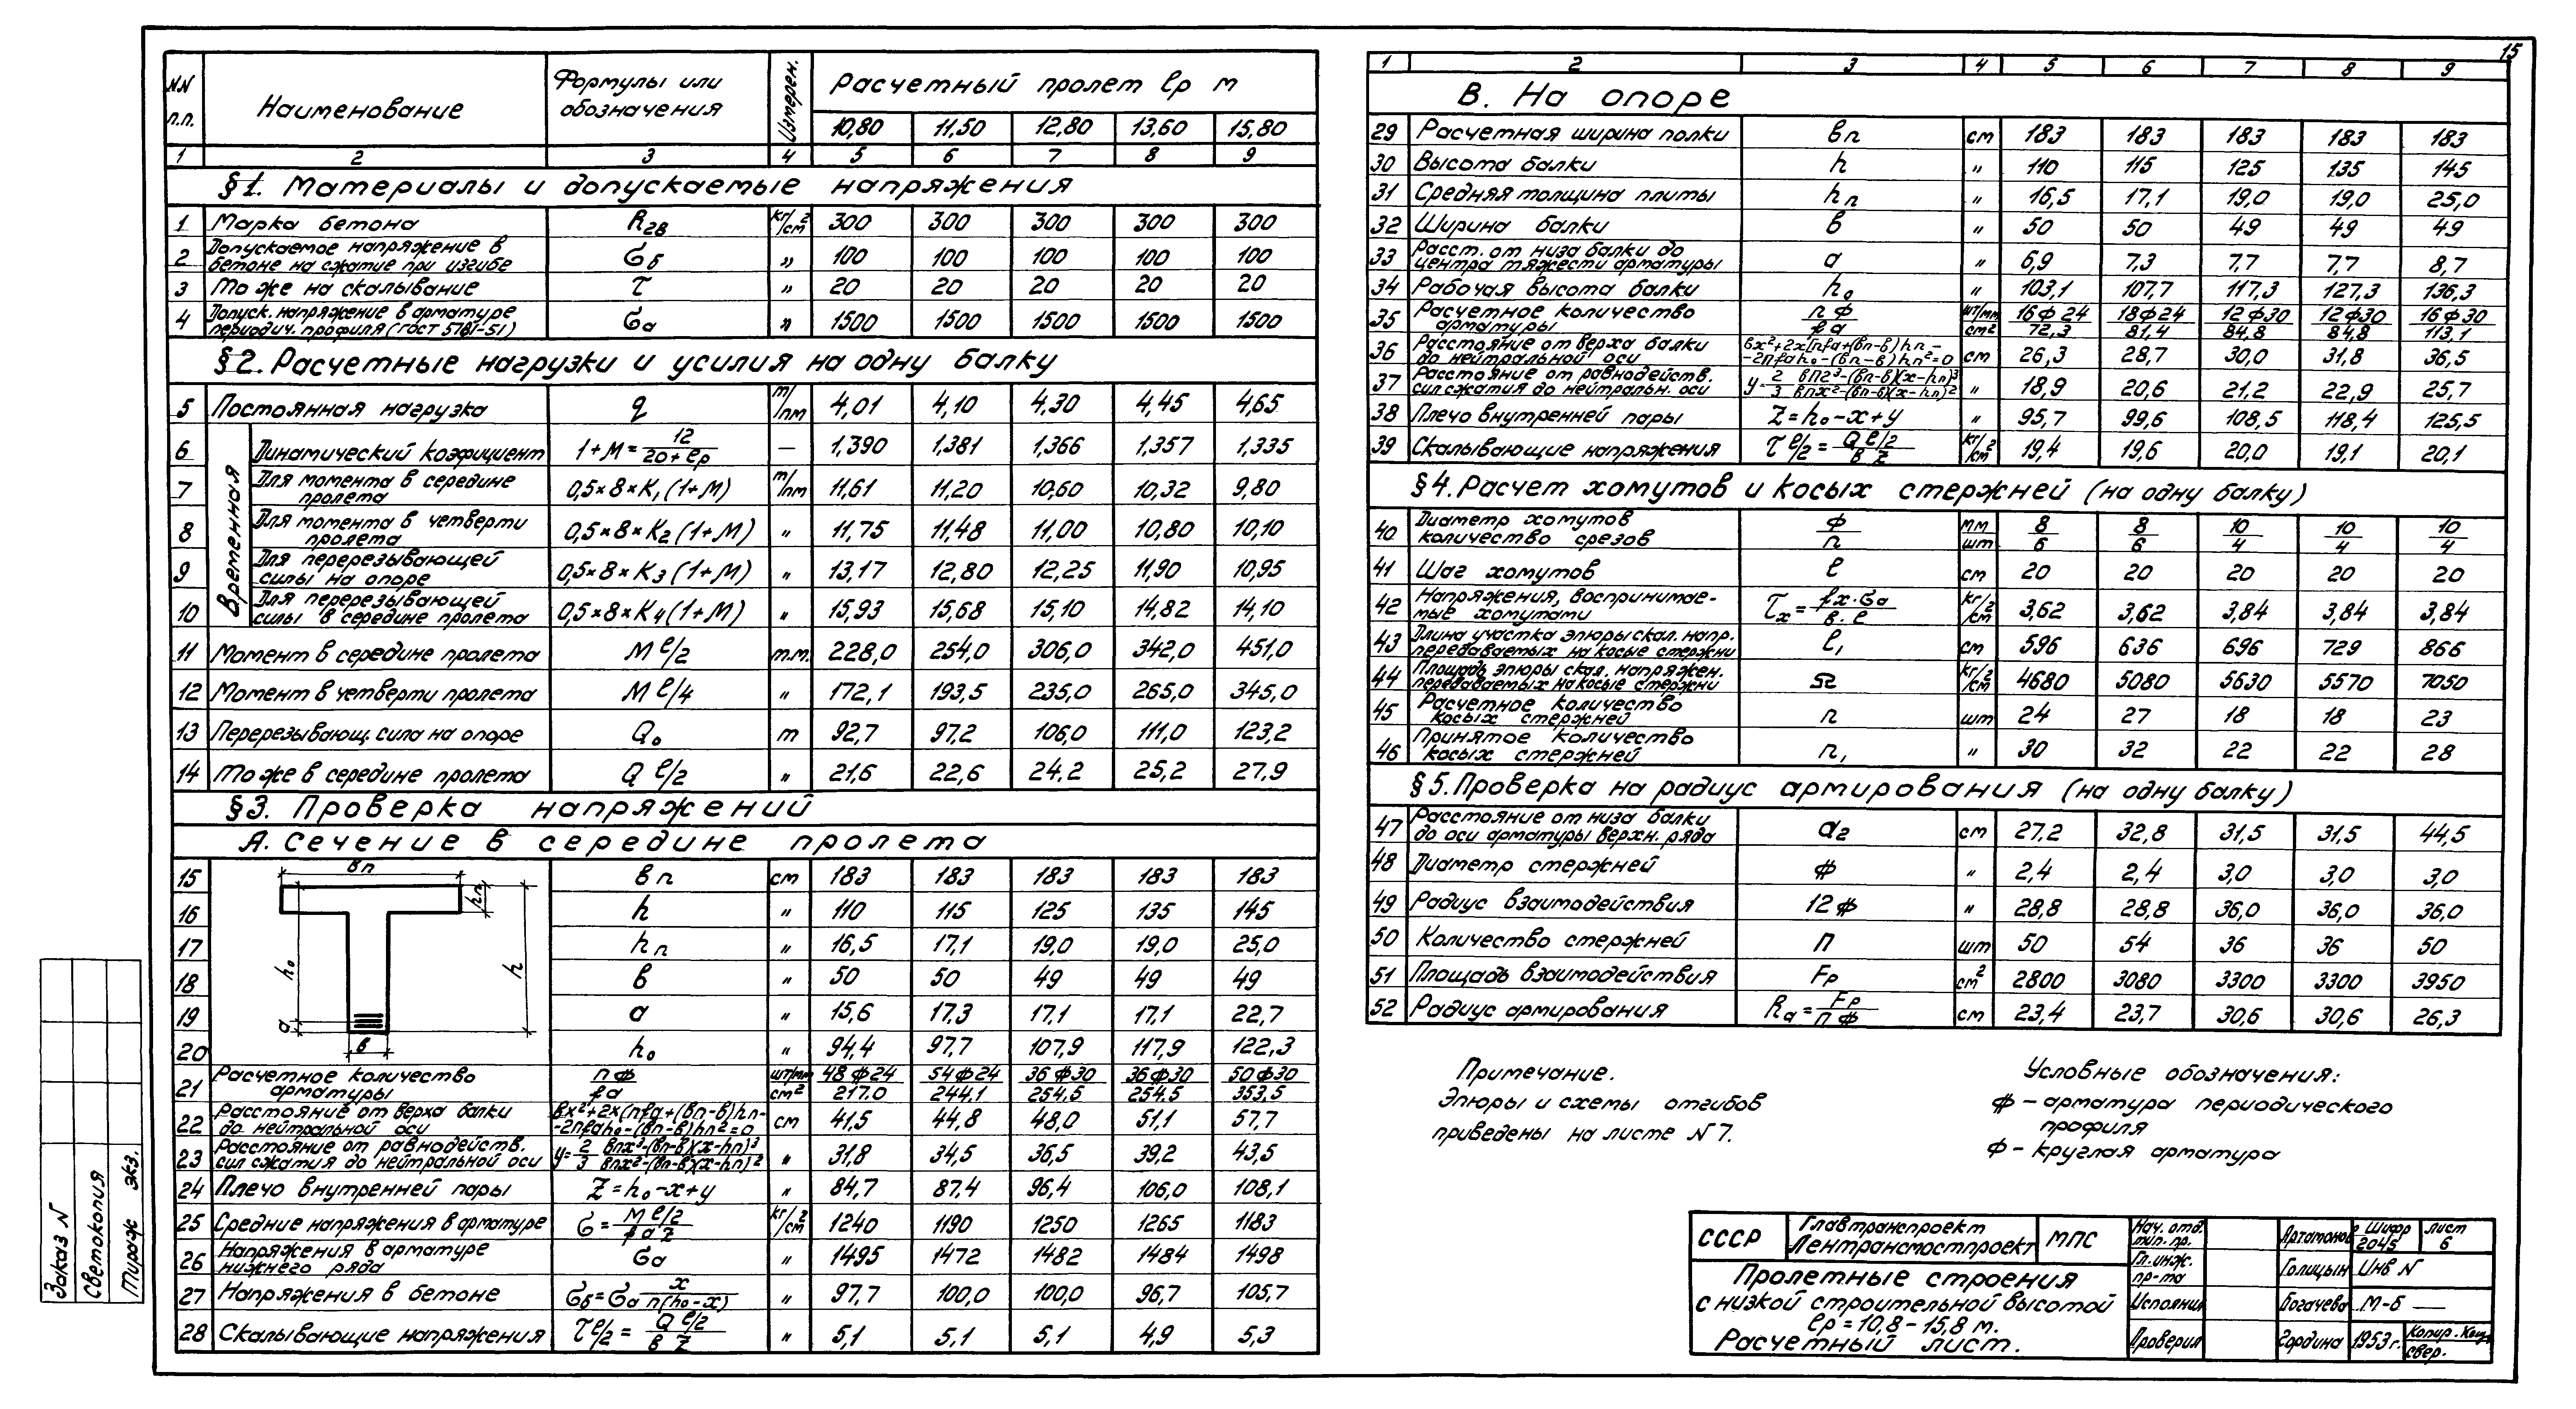 15
NN п.п. Наименование Формулы или обозначения Измерен. Расчетный пролет lр м
10,80 11,50 12,80 13,60 15,80
1 2 3 4 5 6 7 8 9
§1. Материалы и допускаемые напряжения
1 Марка бетона R28 кг/см2 300 300 300 300 300
2 Допускаемое напряжение в бетоне на сжатие при изгибе бб " 100 100 100 100 100
3 То же на скалывание τ " 20 20 20 20 20
4 Допуск. напряжение в арматуре периодич. профиля (гост 5781-51) бa " 1500 1500 1500 1500 1500
§2. Расчетные нагрузки и усилия на одну балку
5 Постоянная нагрузка q т/пм 4,01 4,10 4,30 4,45 4,65
Временная
6 Динамический коэфициент 1+М = 12/20+lр — 1,390 1,381 1,366 1,357 1,335
7 Для момента в середине пролета 0,5×8×К1(1+М) т/пм 11,61 11,20 10,60 10,32 9,80
8 Для момента в четверти пролета 0,5×8×К2(1+М) " 11,75 11,48 11,00 10,80 10,10
9 Для перерезывающей силы на опоре 0,5×8×К3(1+М) " 13,17 12,80 12,25 11,90 10,95
10 Для перерезывающей силы в середине пролета 0,5×8×К4(1+М) " 15,93 15,68 15,10 14,82 14,10
11 Момент в середине пролета М l/2 т.м. 228,0 254,0 306,0 342,0 451,0
12 Момент в четверти пролета М l/4 " 172,1 193,5 235,0 265,0 345,0
13 Перерезывающ. сила на опоре Q0 т 92,7 97,2 106,0 111,0 123,2
14 То же в середине пролета Q l/2 " 21,6 22,6 24,2 25,2 27,9
§3. Проверка напряжений
А. Сечение в середине пролета
вп hп h0 h а в
15 вп см 183 183 183 183 183
16 h " 110 115 125 135 145
17 hп " 16,5 17,1 19,0 19,0 25,0
18 в " 50 50 49 49 49
19 а " 15,6 17,3 17,1 17,1 22,7
20 h0 " 94,4 97,7 107,9 117,9 122,3
21 Расчетное количество арматуры nф/fa шт/мм см2 48ф24/217.0 54ф24/244,1 36ф30/254,5 36ф30/254,5 50ф30/353,5
22 Расстояние от верха балки до нейтральной оси вx²+2x(nfa+(вп-в)hп--2nfah0-(вп-в)hп²=0 см 41,5 44,8 48,0 51,1 57,7
23 Расстояние от равнодейств. сил сжатия до нейтральной оси y=2/3 впx³-(вп-в)(x-hп)³/впx²-(вп-в)(x-hп)² " 31,8 34,5 36,5 39,2 43,5
24 Плечо внутренней пары Z=h0-x+y " 84,7 87,4 96,4 106,0 108,1
25 Средние напряжения в арматуре б = М l/2/fa z кг/см2 1240 1190 1250 1265 1183
26 Напряжения в арматуре нижнего ряда бa " 1495 1472 1482 1484 1498
27 Напряжения в бетоне бб=бa x/n(h0-x) " 97.7 100,0 100,0 96,7 105,7
28 Скалывающие напряжения τ l/2 = Q l/2/в Z " 5,1 5,1 5,1 4,9 5,3
1 2 3 4 5 6 7 8 9
В. На опоре
29 Расчетная ширина полки вп см 183 183 183 183 183
30 Высота балки h " 110 115 125 135 145
31 Средняя толщина плиты hп " 16,5 17,1 19,0 19,0 25,0
32 Ширина балки в " 50 50 49 49 49
33 Расст. от низа балки до центра тяжести арматуры а " 6,9 7,3 7,7 7,7 8,7
34 Рабочая высота балки h0 " 103,1 107,7 117,3 127,3 136,3
35 Расчетное количество арматуры nф/fa шт/мм см2 16ф24/72,3 18ф24/81,4 12ф30/84,8 12ф30/84,8 16ф30/113,1
36 Расстояние от верха балки до нейтральной оси вx²+2x[nfa+(вп-в)hп--2nfah0-(вп-в)hп²=0 см 26,3 28,7 30,0 31,8 36,5
37 Расстояние от равнодейств. сил сжатия до нейтральн. оси y=2/3 вп2³-(вп-в)(x-hп)³/впx²-(вп-в)(x-hп)² " 18,9 20,6 21,2 22,9 25,7
38 Плечо внутренней пары Z=h0-x+y " 95,7 99,6 108,5 118,4 125,5
39 Скалывающие напряжения τ l/2 = Q l/2/в Z кг/см2 19,4 19,6 20,0 19,1 20,1
§4. Расчет хомутов и косых стержней (на одну балку)
40 Диаметр хомутов количество срезов ф/n мм шт 8/6 8/6 10/4 10/4 10/4
41 Шаг хомутов l см 20 20 20 20 20
42 Напряжения, воспринимаемые хомутами τx = fx·бa/в.l кг/см2 3,62 3,62 3,84 3,84 3,84
43 Длина участка эпюры скал. напр. передаваемых на косые стержни l1 см 596 636 696 729 866
44 Площадь эпюры скал. напряжен. передаваемых на косые стержни Ω кг/см2 4680 5080 5630 5570 7050
45 Расчетное количество косых стержней n шт 24 27 18 18 23
46 Принятое количество косых стержней n1 " 30 32 22 22 28
§5. Проверка на радиус армирования (на одну балку)
47 Расстояние от низа балки до оси арматуры верхн. ряда а2 см 27.2 32,8 31,5 31,5 44,5
48 Диаметр стержней ф " 2,4 2,4 3,0 3,0 3,0
49 Радиус взаимодействия 12ф " 28,8 28,8 36,0 36,0 36,0
50 Количество стержней П шт 50 54 36 36 50
51 Площадь взаимодействия Fр см2 2800 3080 3300 3300 3950
52 Радиус армирования Rа = Fр/П ф см 23,4 23,7 30,6 30,6 26,3
Примечание.
Эпюры и схемы отгибов
приведены на листе N7.
Условные обозначения:
ф – арматура периодического
профиля
ф – круглая арматура
СССР Главтранспроект Лентрансмостпроект МПС
Пролетные строения
с низкой строительной высотой
lр = 10,8 – 15,8 м.
Расчетный лист.
Нач. отд. тип. пр. Артамонов Шифр 2045 лист 6
Гл. инж. пр-та Голицын Инв N
Исполнил Богачева М-б —
Проверил Гордина 1953 г. Копир. свер.
Заказ N
Светокопия
Тираж экз.